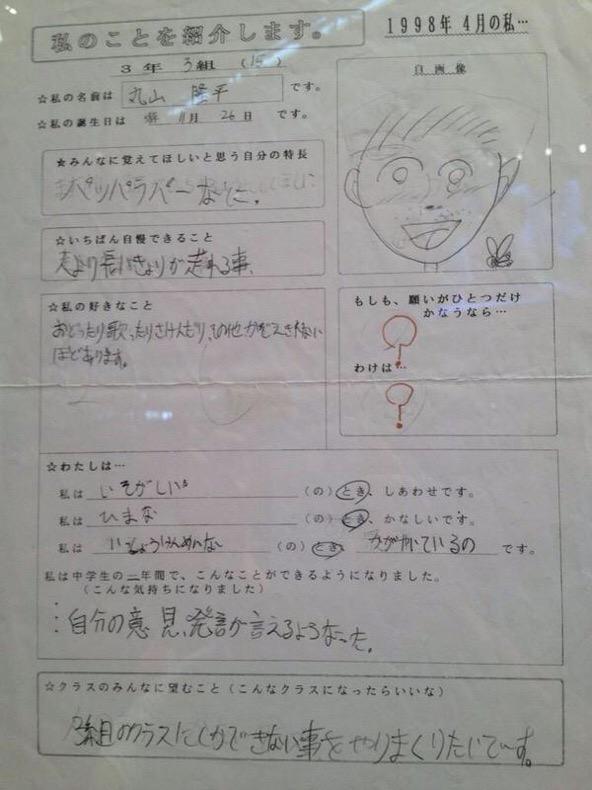 私のことを紹介します。
1998年 4月の私…
3年 3組 (15)
☆私の名前は 丸山 隆平 です。
☆私の誕生日は 11月 26日 です。
自画像
★みんなに覚えてほしいと思う自分の特長
パッパラパーなとこ。
☆いちばん自慢できること
人より長いきょりが走れる事、
☆私の好きなこと
おどったり歌ったりさけんだり、その他かぞえきれない
ほどあります。
もしも、願いがひとつだけ
かなうなら…
?
わけは…
?
☆わたしは…
私は いそがしい (の) とき、しあわせです。
私は ひまな (の) とき、かなしいです。
私は いっしょうけんめいな (の) とき かがやいているの です。
私は中学生の二年間で、こんなことができるようになりました。
(こんな気持ちになりました)
:自分の意見、発言が言えるようなった。
☆クラスのみんなに望むこと(こんなクラスになったらいいな)
3組のクラスにしかできない事をやりまくりたいです。